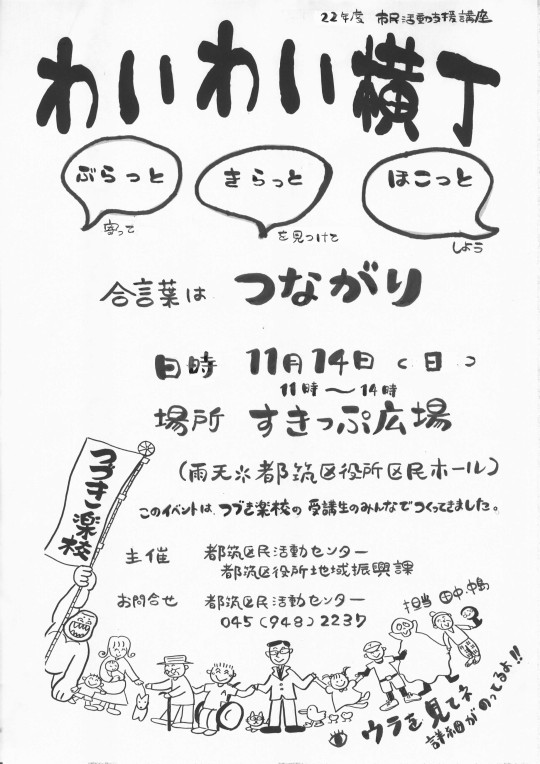 22年度 市民活動支援講座
わいわい横丁
ぶらっと
寄って
きらっと
を見つけて
ほこっと
しよう
合言葉は つながり
日時 11月14日(日)
11時〜14時
場所 すきっぷ広場
(雨天※都筑区役所区民ホール)
このイベントは、つづき楽校の受講生のみんなでつくってきました。
つづき楽校
主催 都筑区民活動センター
都筑区役所地域振興課
お問合せ 都筑区民活動センター
045(948)2237
担当 田中・中島
ウラを見てネ
詳細がのってるよ!!